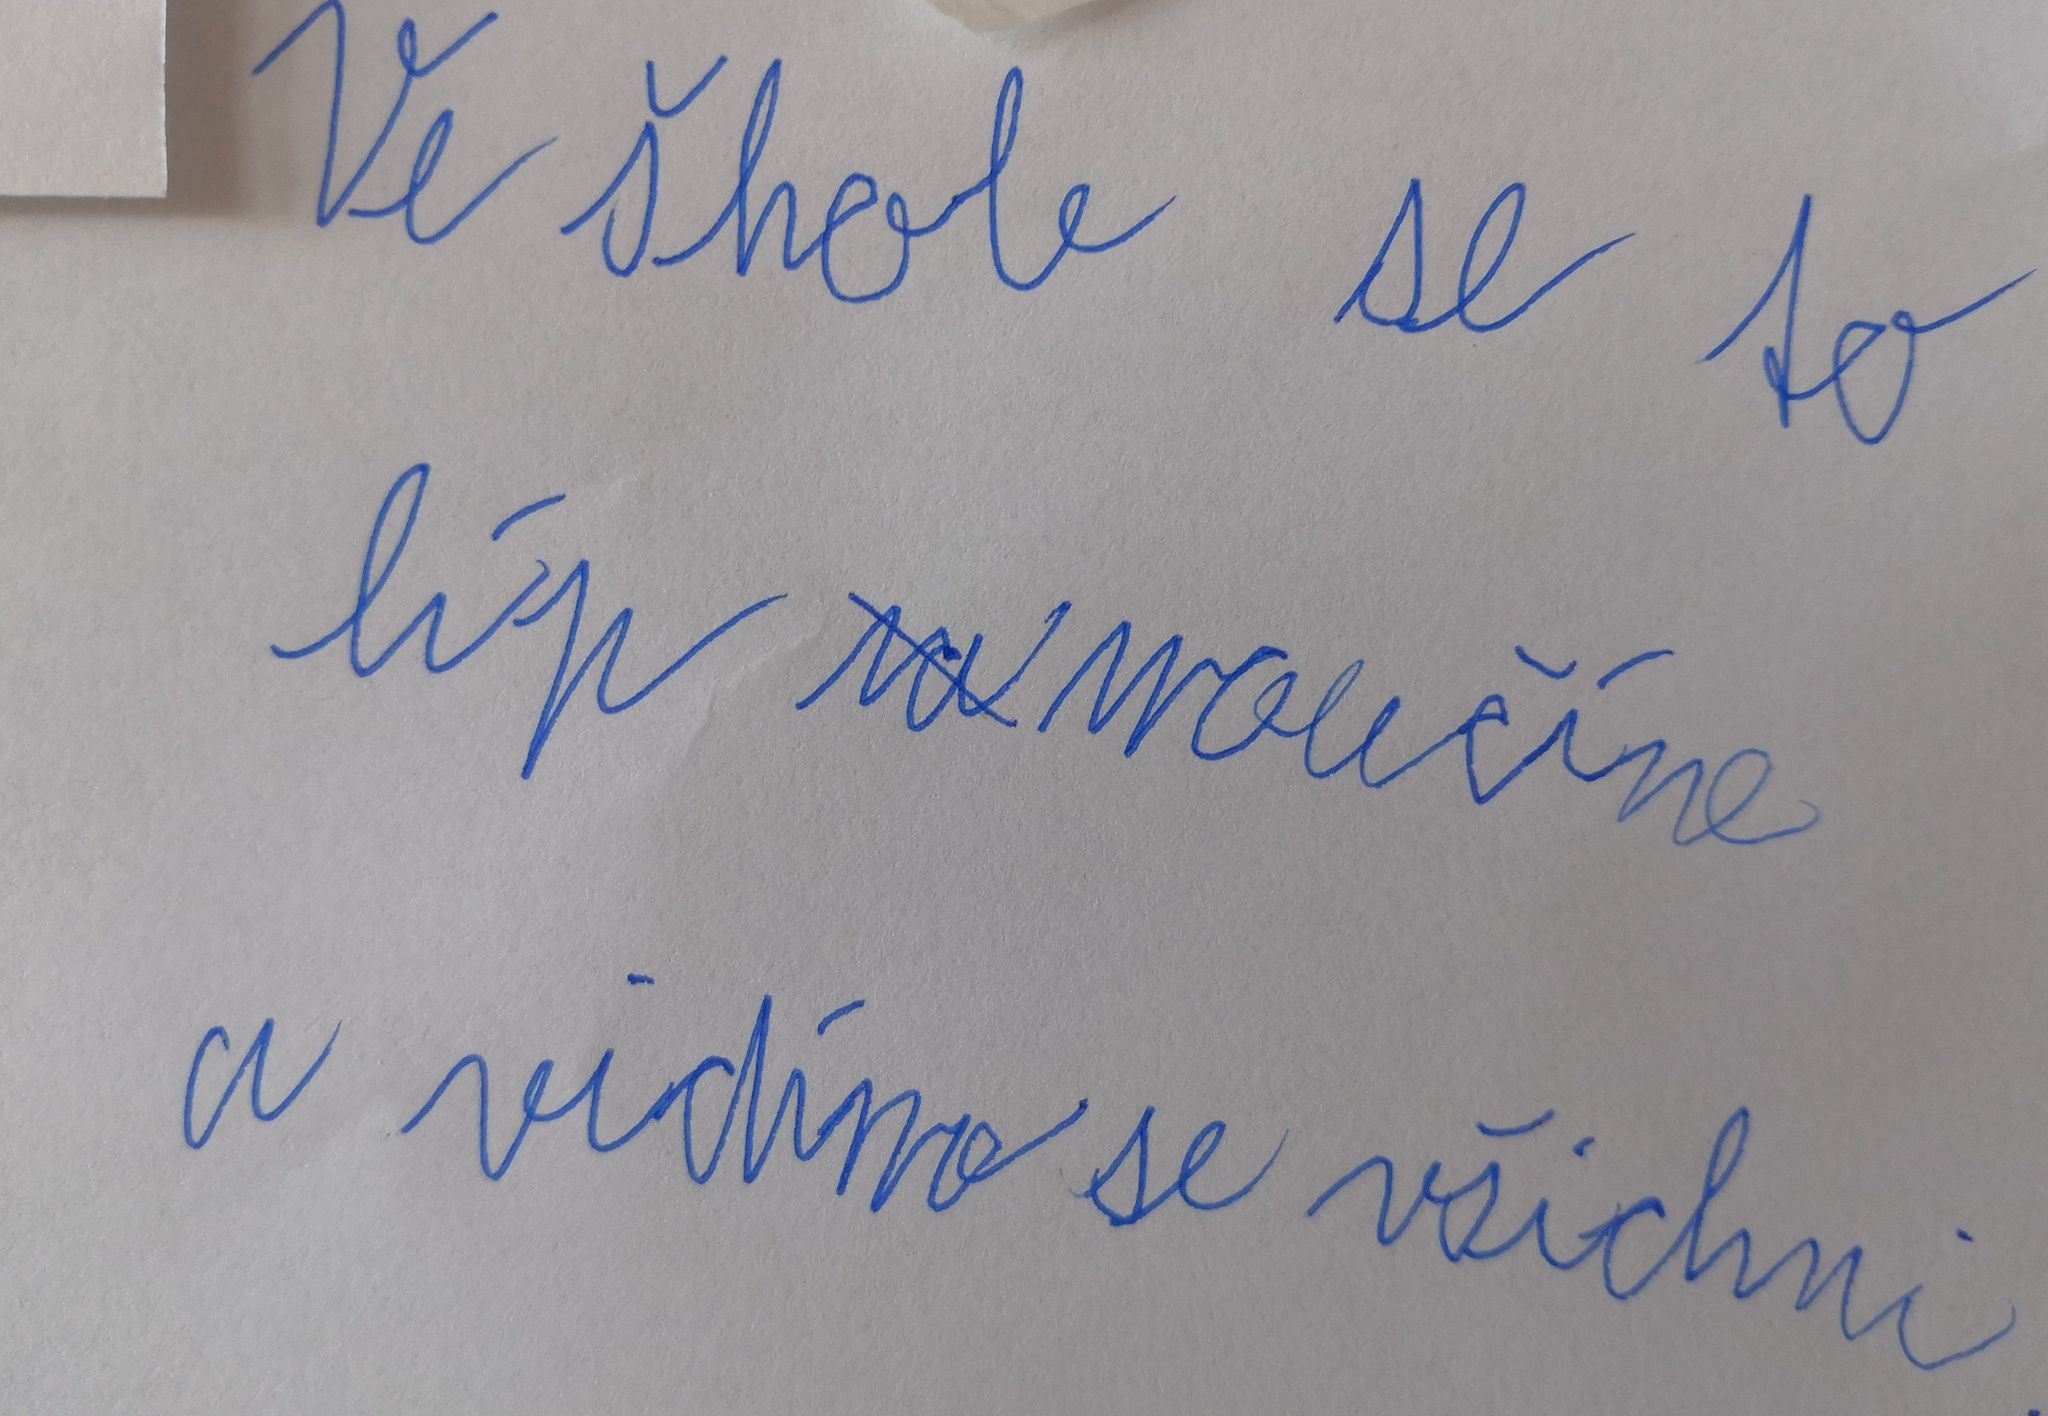 Ve škole se to
líp naučíme
a vidíme se všichni.